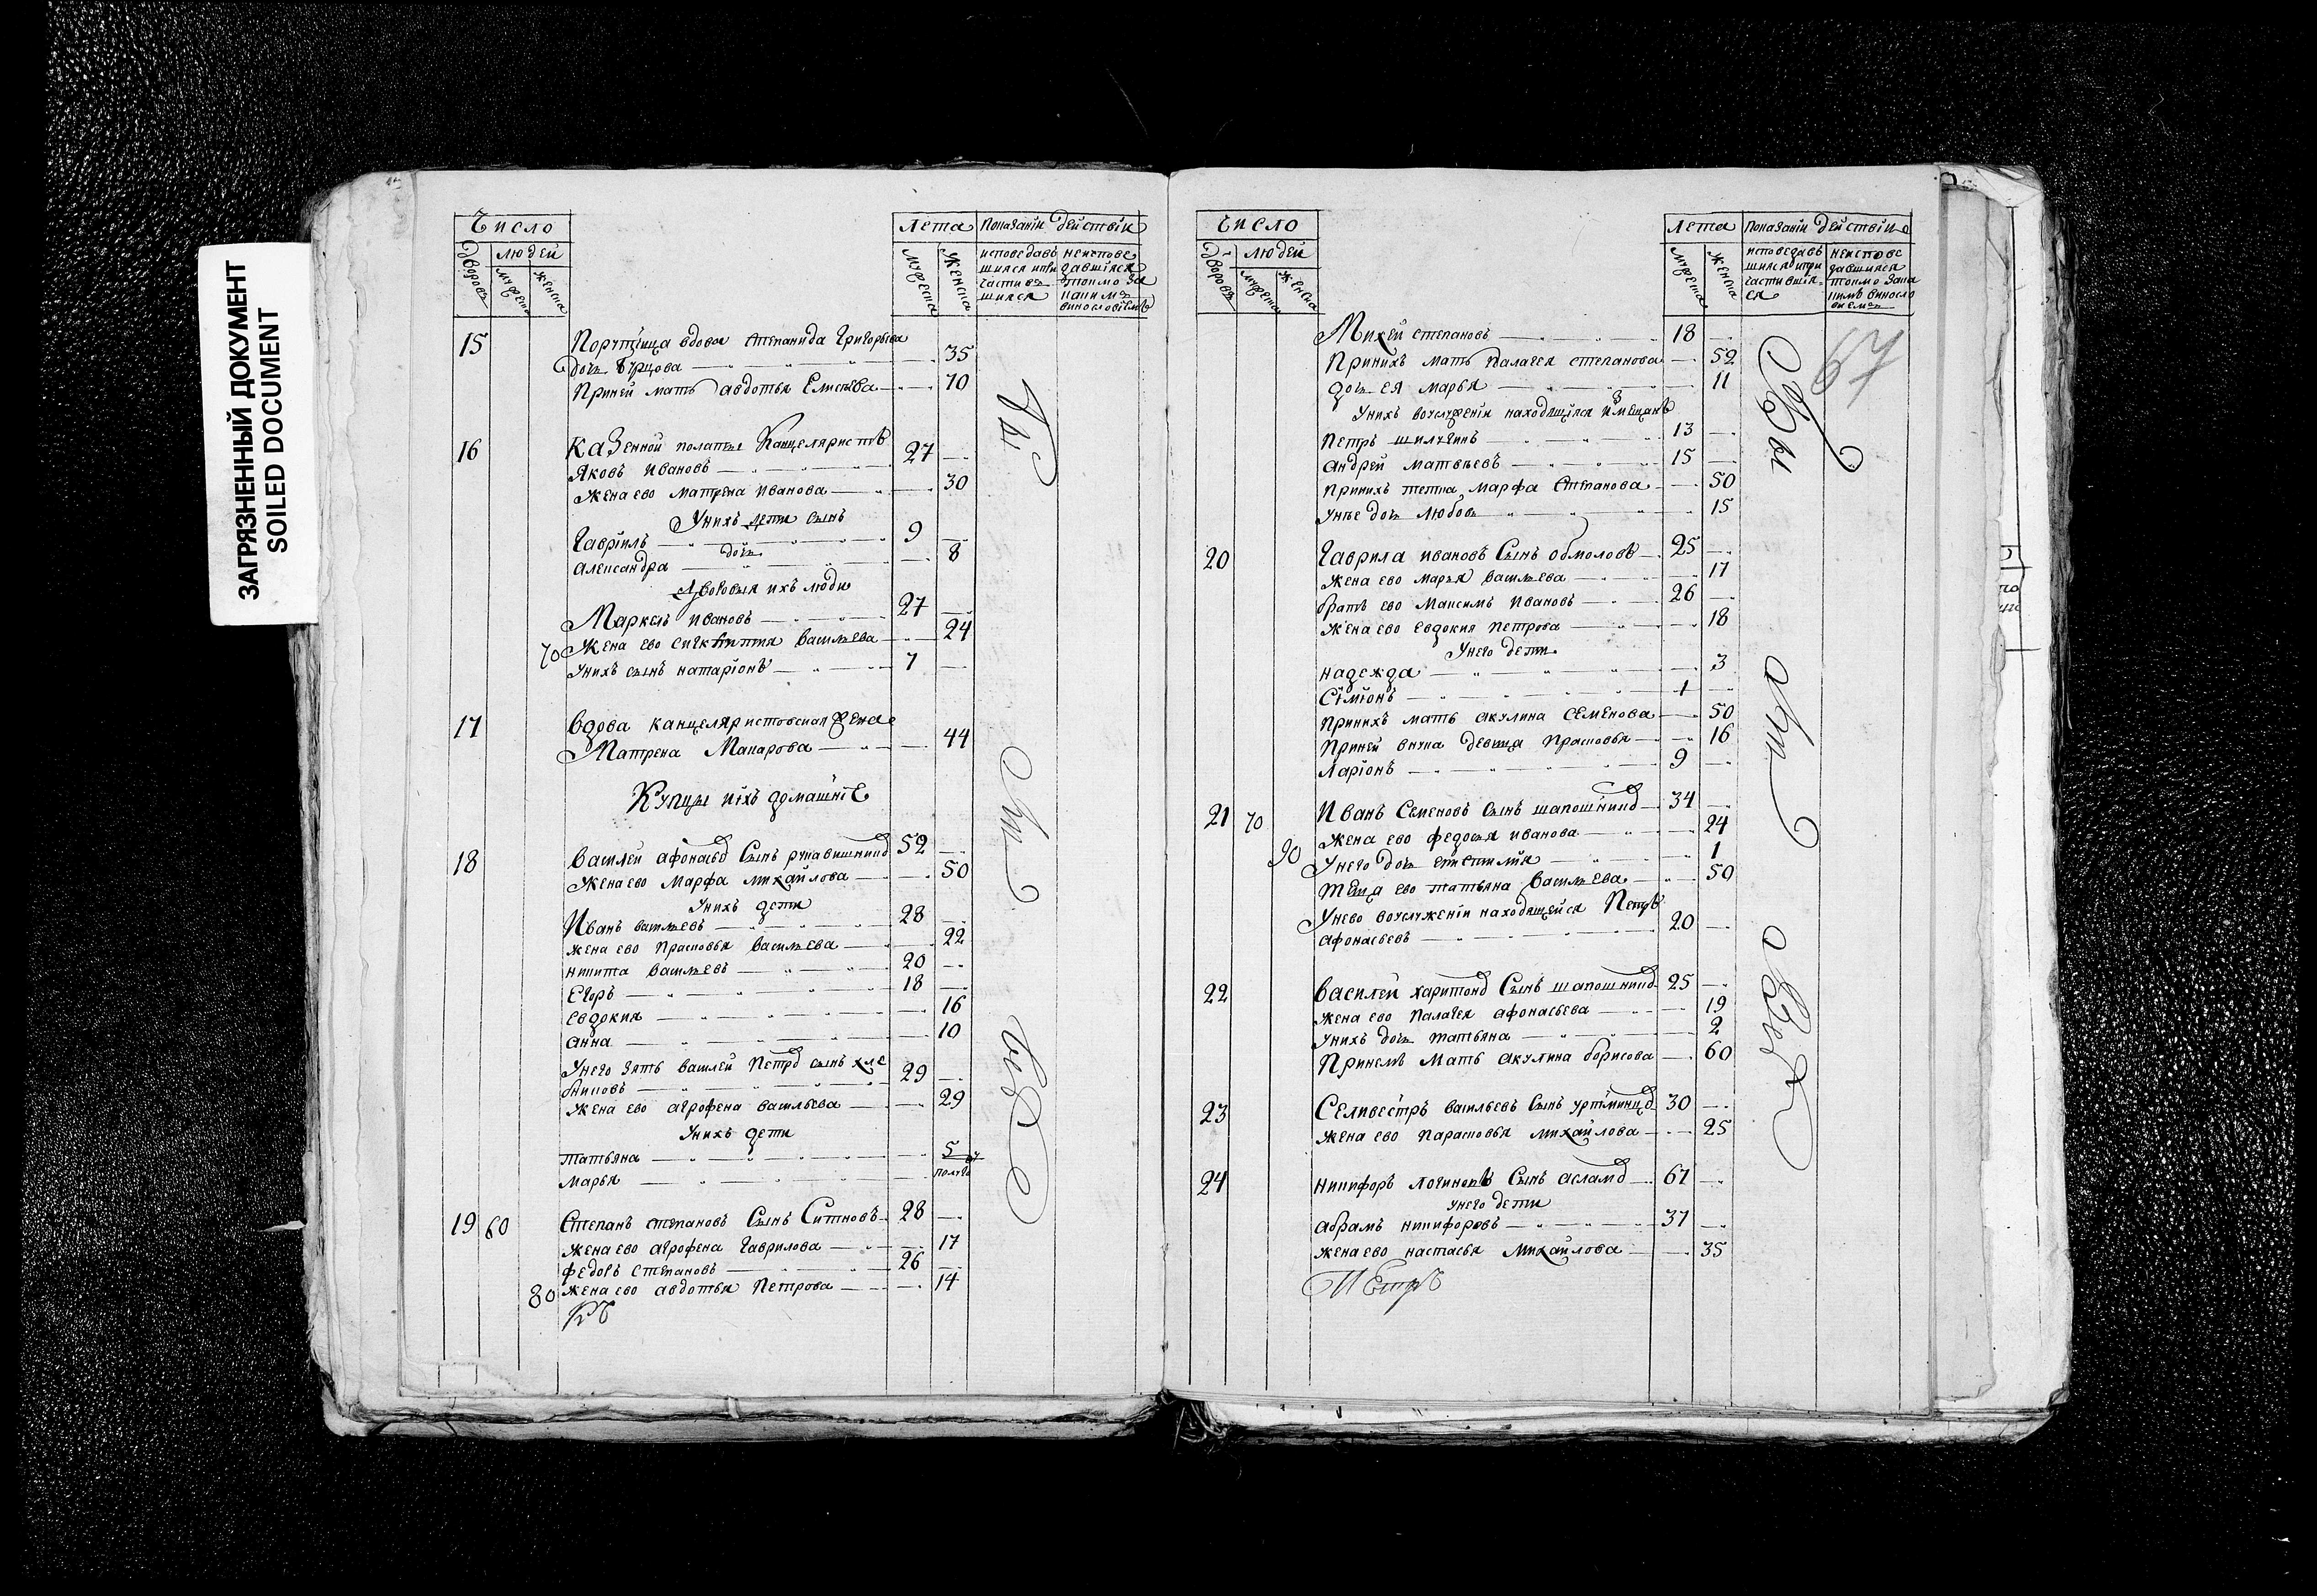 ЗАГРЯЗНЕННЫЙ ДОКУМЕНТ
SOILED DOCUMENT
Число
Лета
Показанiи действiи
дворовъ
людей
мужеска
женска
мужеска
женска
исповедавшихся и при частившихся
неисповедавшихся токмо за каким винословiемъ
15 Порутчица вдова Степанида Григорьева
дочь Бурцова 35
При ней мать авдотья Елисеева 70
16 Казенной полаты Канцеляристъ
Яковъ Ивановъ 27
Жена ево матрена Иванова 30
У нихъ дети сынъ
Гаврiилъ 9
дочь
александра 8
Дворовыя ихъ люди
Маркелъ Ивановъ 27
70 Жена ево Васильева 24
У нихъ сынъ 7
17 Вдова канцеляристовская жена
Матрена Макарова 44
Купцы и ихъ домашнiе
18 Василей афонасьевъ Сынъ рукавишниковъ 52
Жена ево Марфа михайлова 50
У нихъ дети
Иванъ васильевъ 28
жена ево Прасковья Васильева 22
никита Васильевъ 20
Егоръ 18
евдокия 16
анна 10
У него зять василей Петровъ сынъ хле
бниковъ 29
жена ево агрофена васильева 29
У нихъ дети
татьяна 5
марья
19 60 Степанъ степановъ Сынъ Ситновъ 28
жена ево агрофена Гаврилова 17
федоръ степановъ 26
80 жена ево авдотья Петрова 14
Число
Лета
Показанiи действiи
дворовъ
людей
мужеска
женска
мужеска
женска
исповедавшихся и при частившихся
неисповедавшихся токмо за каким винословiемъ
67
Михей степановъ 18
При нихъ мать Палагея степанова 52
дочь ея марья 11
У нихъ во служенiи находящiяся из мещанъ
Петръ 13
андрей матвеевъ 15
При нихъ тетка марфа Степанова 50
у нее дочь любовь 15
20 Гаврила ивановъ Сынъ обмоловъ 25
Жена ево марья васильева 17
братъ ево Максимъ Ивановъ 26
жена ево евдокия петрова 18
У него дети
надежда 3
Сiмiонъ 1
при нихъ мать акулина семенова 50
При ней внука девица Прасковья 16
Ларiонъ 9
21 70 Иванъ Семеновъ Сынъ шапошниковъ 34
жена ево федосья иванова 24
90 У него дочь 1
теща ево татьяна Васильева 50
У нево во служенiи находящейся Петръ
афонасьевъ 20
22 Василей харитоновъ Сынъ шапошниковъ 25
жена ево палагея афонасьева 19
У нихъ дочь татьяна 2
При немъ мать акулина борисова 60
23 Селивестръ васильевъ Сынъ 30
жена ево парасковья михайлова 25
24 никифоръ логиновъ Сынъ аслановъ 67
у него дети
абрамъ никифоровъ 37
жена ево настасья михайлова 35
Петръ